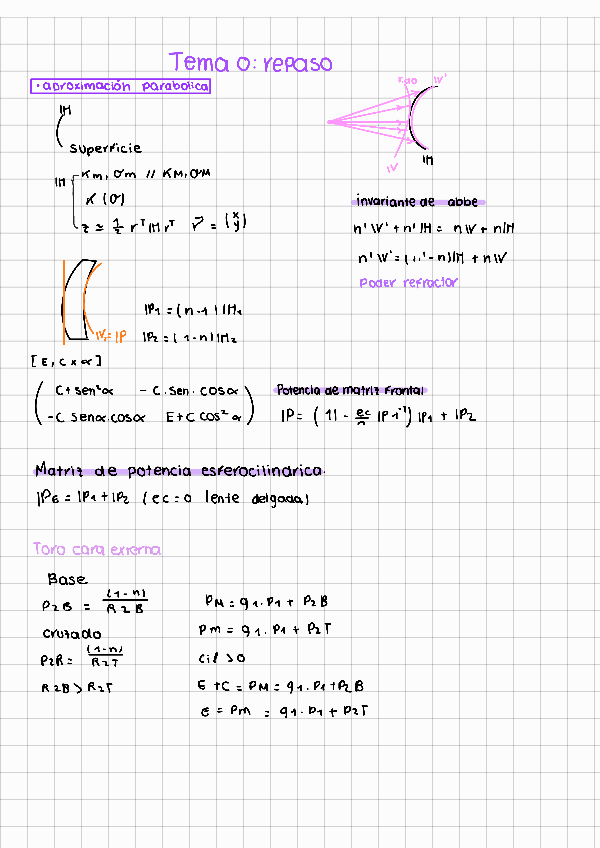 Tema 0: repaso
· aproximación parabolica
IH
superficie
IH
Km, σm // KM, σM
K (σ)
z ≃ 1/2 r^T IH r^T r⃗ = (x y)
W'
IV
IH
invariante de abbe
n' V' + n' IH = n V + n IH
n' V' = (n' - n) IH + n V
Poder refractor
IP1 = (n - 1) IH1
IV = IP
IP2 = (1 - n) IH2
[E, C x α]
( C + sen²α - C . sen . cosα
- C senα . cosα E + C cos²α )
Potencia de matriz frontal
IP = ( 11 - ec/n IP1^-1 ) IP1 + IP2
Matriz de potencia esferocilíndrica.
IPE = IP1 + IP2 ( ec = 0 lente delgada )
Toro cara externa
Base
P2B = (1 - n) / R2B
PM = g1 . P1 + P2B
cruzado
Pm = g1 . P1 + P2T
P2R = (1 - n) / R2T
cil > 0
R2B > R2T
E + C = PM = g1 . P1 + P2B
E = Pm = g1 . P1 + P2T